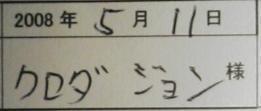 2008年 5月 11日
クロダ ジョン 様